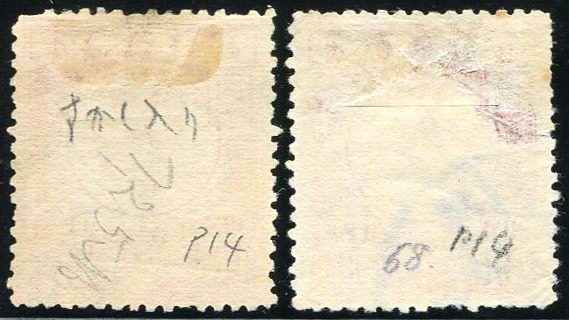 すかし入り
P.14
68. P14